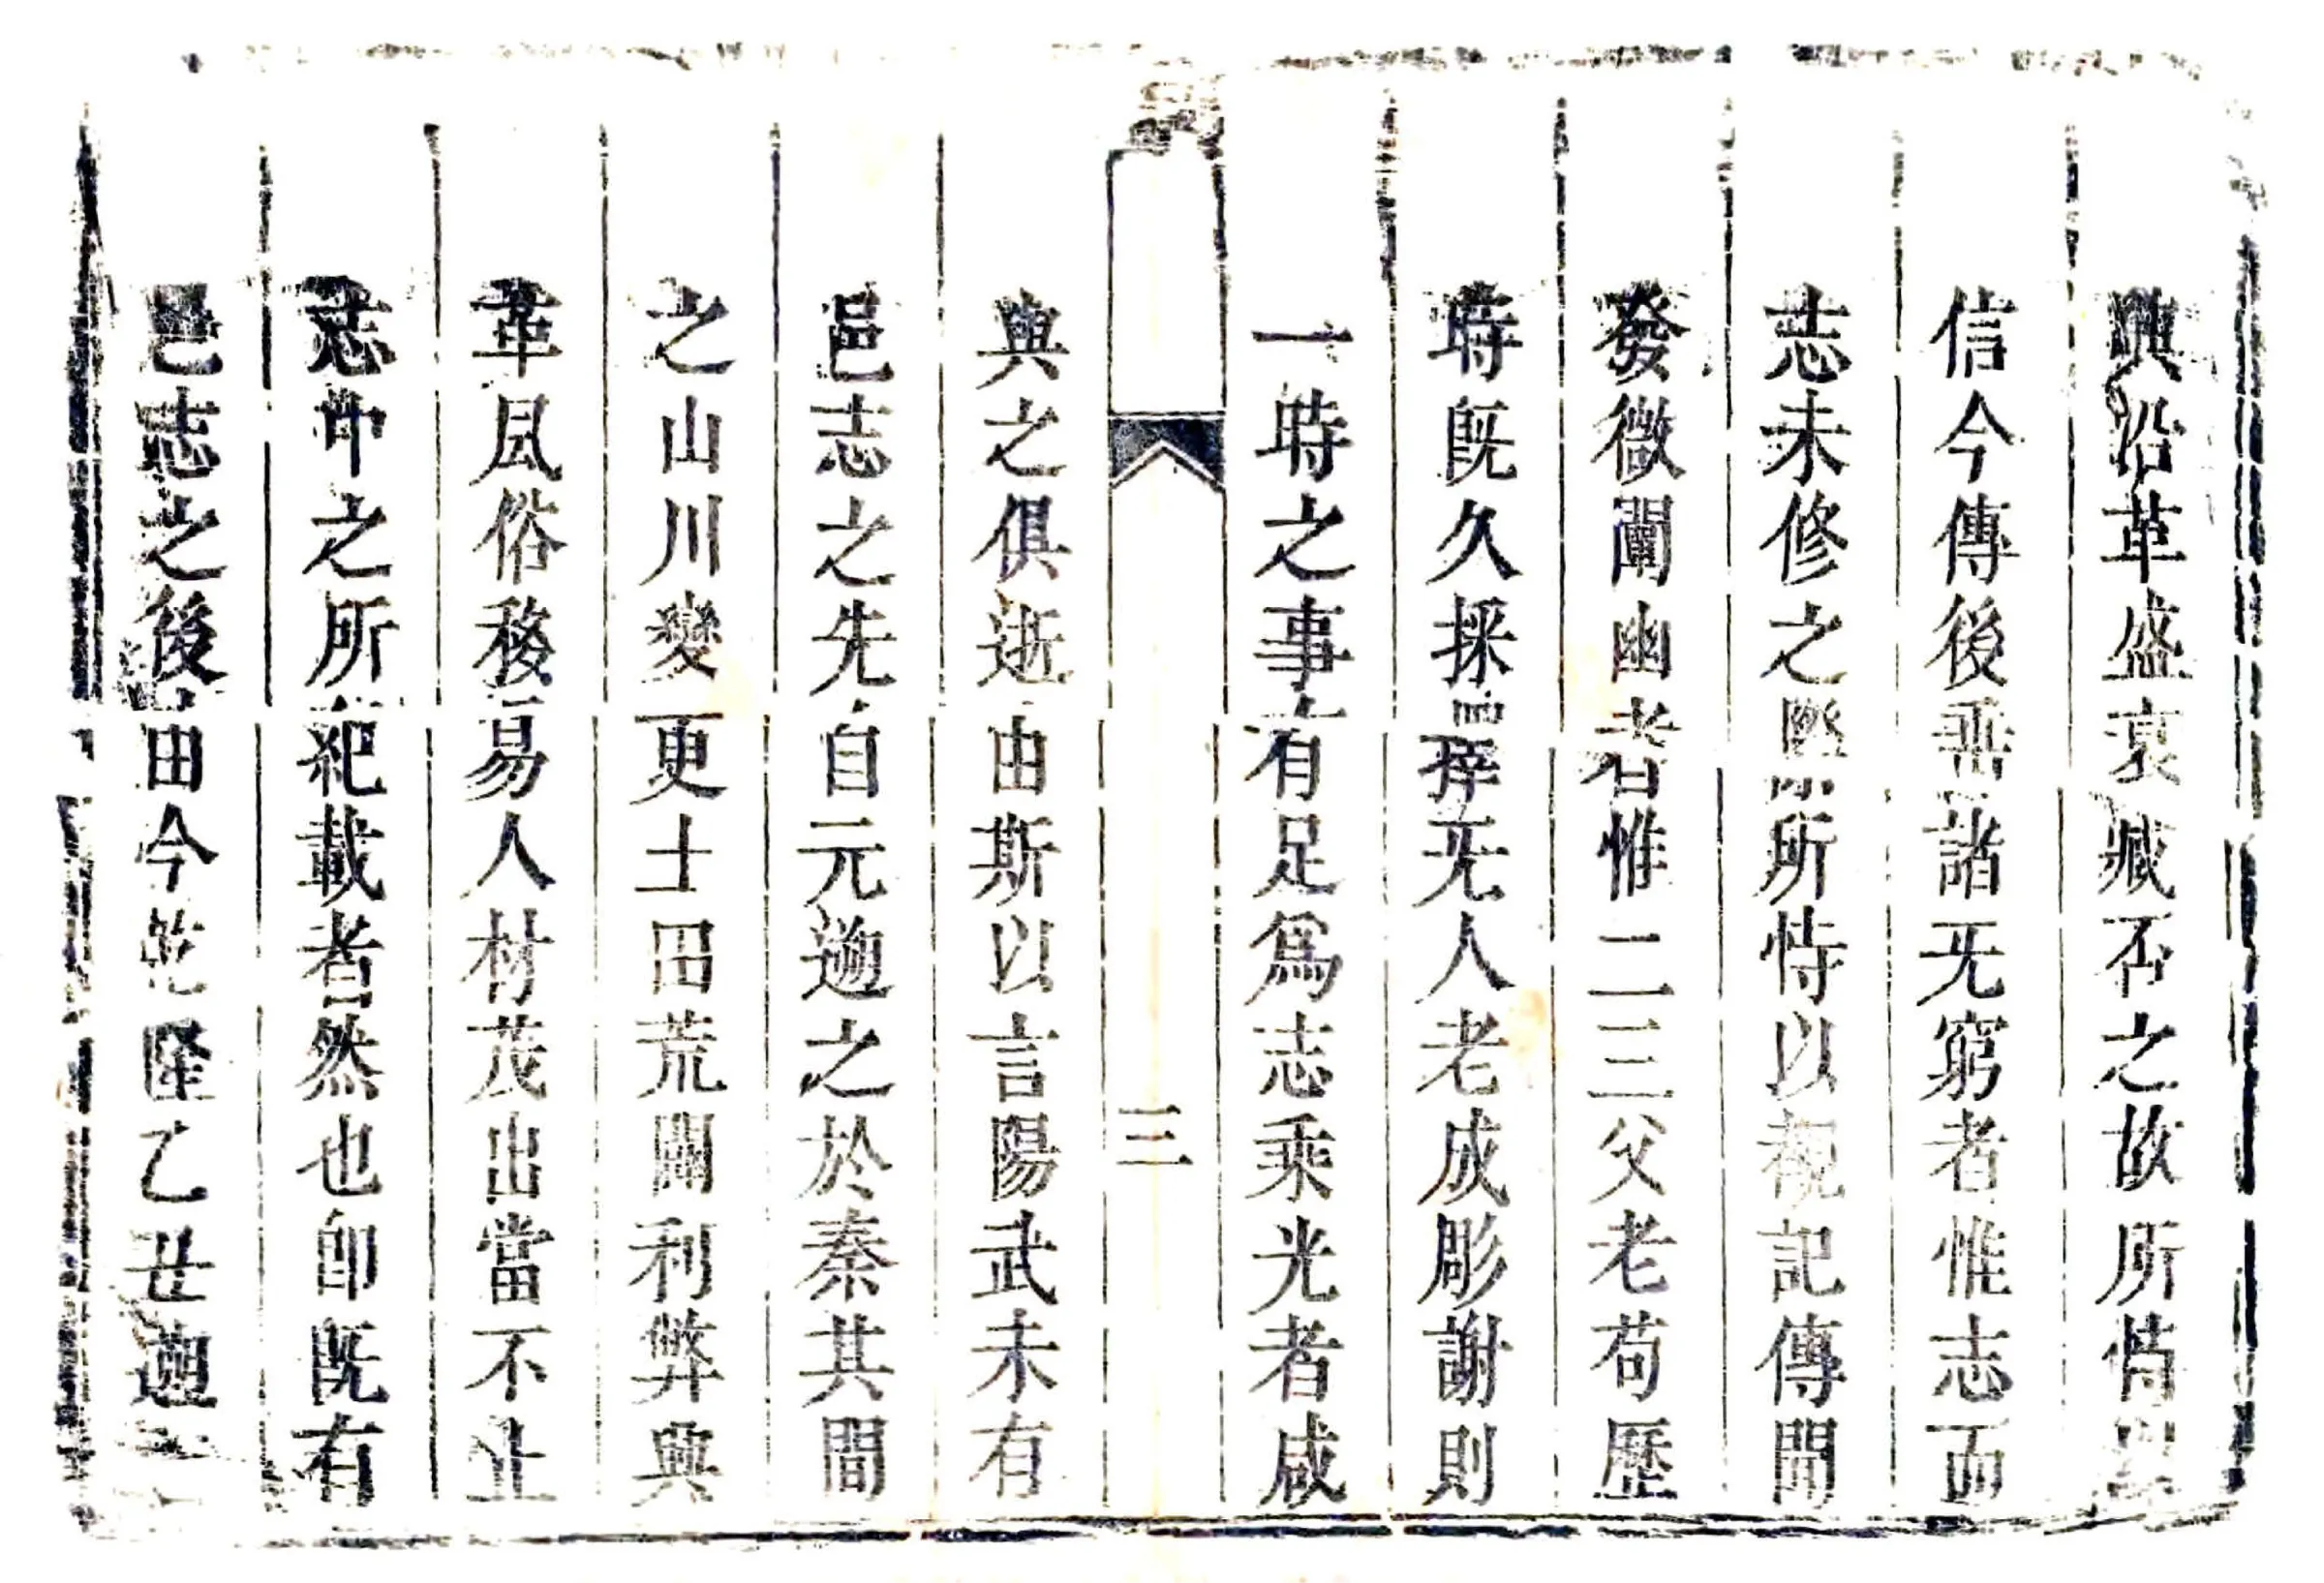 興沿革盛衰臧否之故所恃以
信今傳後垂諸旡窮者惟志而
志未修之際所恃以覩記傳聞
發微闡幽者惟二三父老苟歷
時既久採擇旡人老成彫謝則
一時之事有足爲志乘光者咸
三
與之俱逝由斯以言陽武未有
邑志之先自元遡之於秦其間
之山川變更土田荒闢利弊興
革風俗移易人材茂出當不止
志中之所紀載者然也卽既有
邑志之後由今乾隆乙丑遡